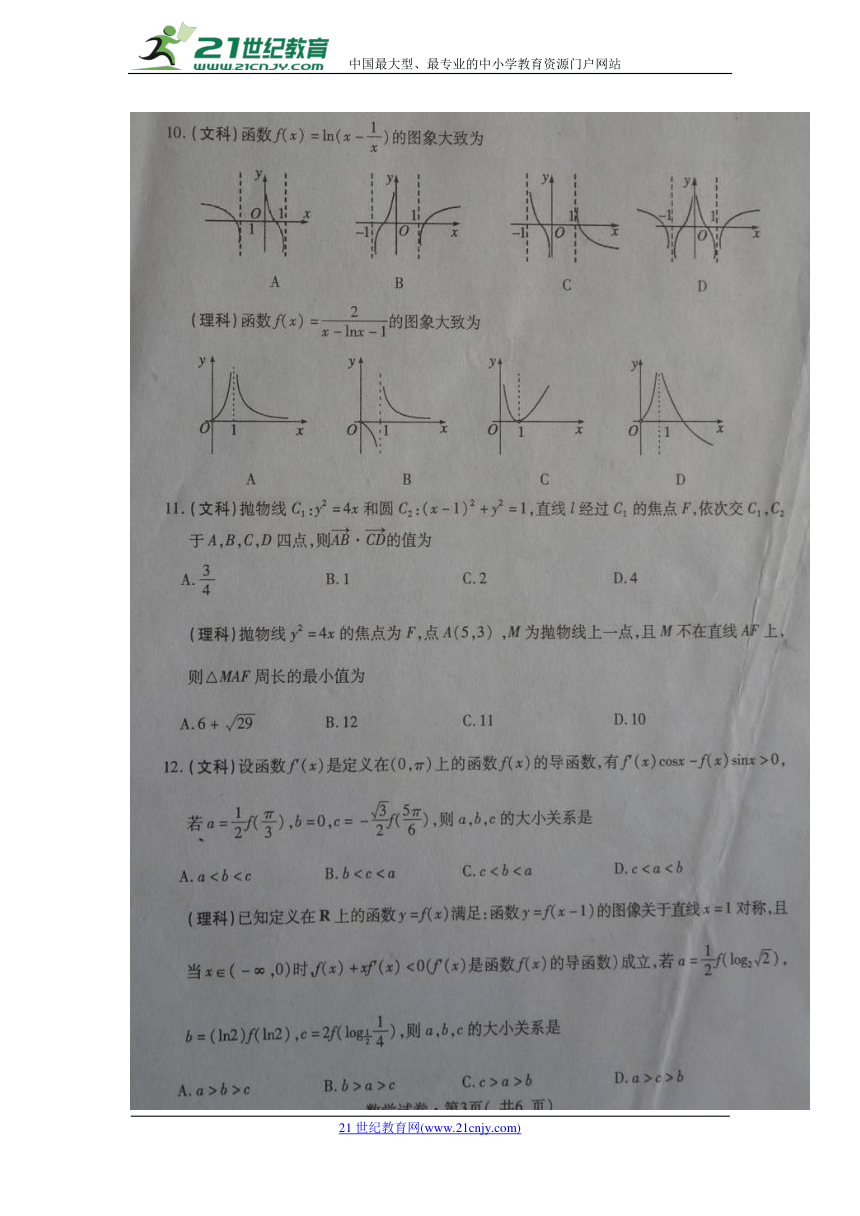 21世纪教育
WWW.21CNJY.COM
中国最大型、最专业的中小学教育资源门户网站
10.(文科)函数f(x)=ln(x-1/x)的图象大致为
y O 1 1 x
y -1 O 1 x
y -1 O 1 x
y -1 O 1 x
A B C D
(理科)函数f(x)=2/(x-lnx-1)的图象大致为
y O 1 x
y O 1 x
y O 1 x
y O 1 x
A B C D
11.(文科)抛物线C₁:y²=4x和圆C₂:(x-1)²+y²=1,直线l经过C₁的焦点F,依次交C₁,C₂
于A,B,C,D四点,则AB·CD的值为
A.3/4 B.1 C.2 D.4
(理科)抛物线y²=4x的焦点为F,点A(5,3),M为抛物线上一点,且M不在直线AF上,
则△MAF周长的最小值为
A.6+√29 B.12 C.11 D.10
12.(文科)设函数f′(x)是定义在(0,π)上的函数f(x)的导函数,有f′(x)cosx-f(x)sinx>0,
若a=1/2f(π/3),b=0,c=-√3/2f(5π/6),则a,b,c的大小关系是
A.a<b<c B.b<c<a C.c<b<a D.c<a<b
(理科)已知定义在R上的函数y=f(x)满足:函数y=f(x-1)的图像关于直线x=1对称,且
当x∈(-∞,0)时,f(x)+xf′(x)<0(f′(x)是函数f(x)的导函数)成立,若a=1/2f(log₂√2),
b=(ln2)f(ln2),c=2f(log_{1/2}1/4),则a,b,c的大小关系是
A.a>b>c B.b>a>c C.c>a>b D.a>c>b
数学试卷·第3页(共6页)
21世纪教育网(www.21cnjy.com)